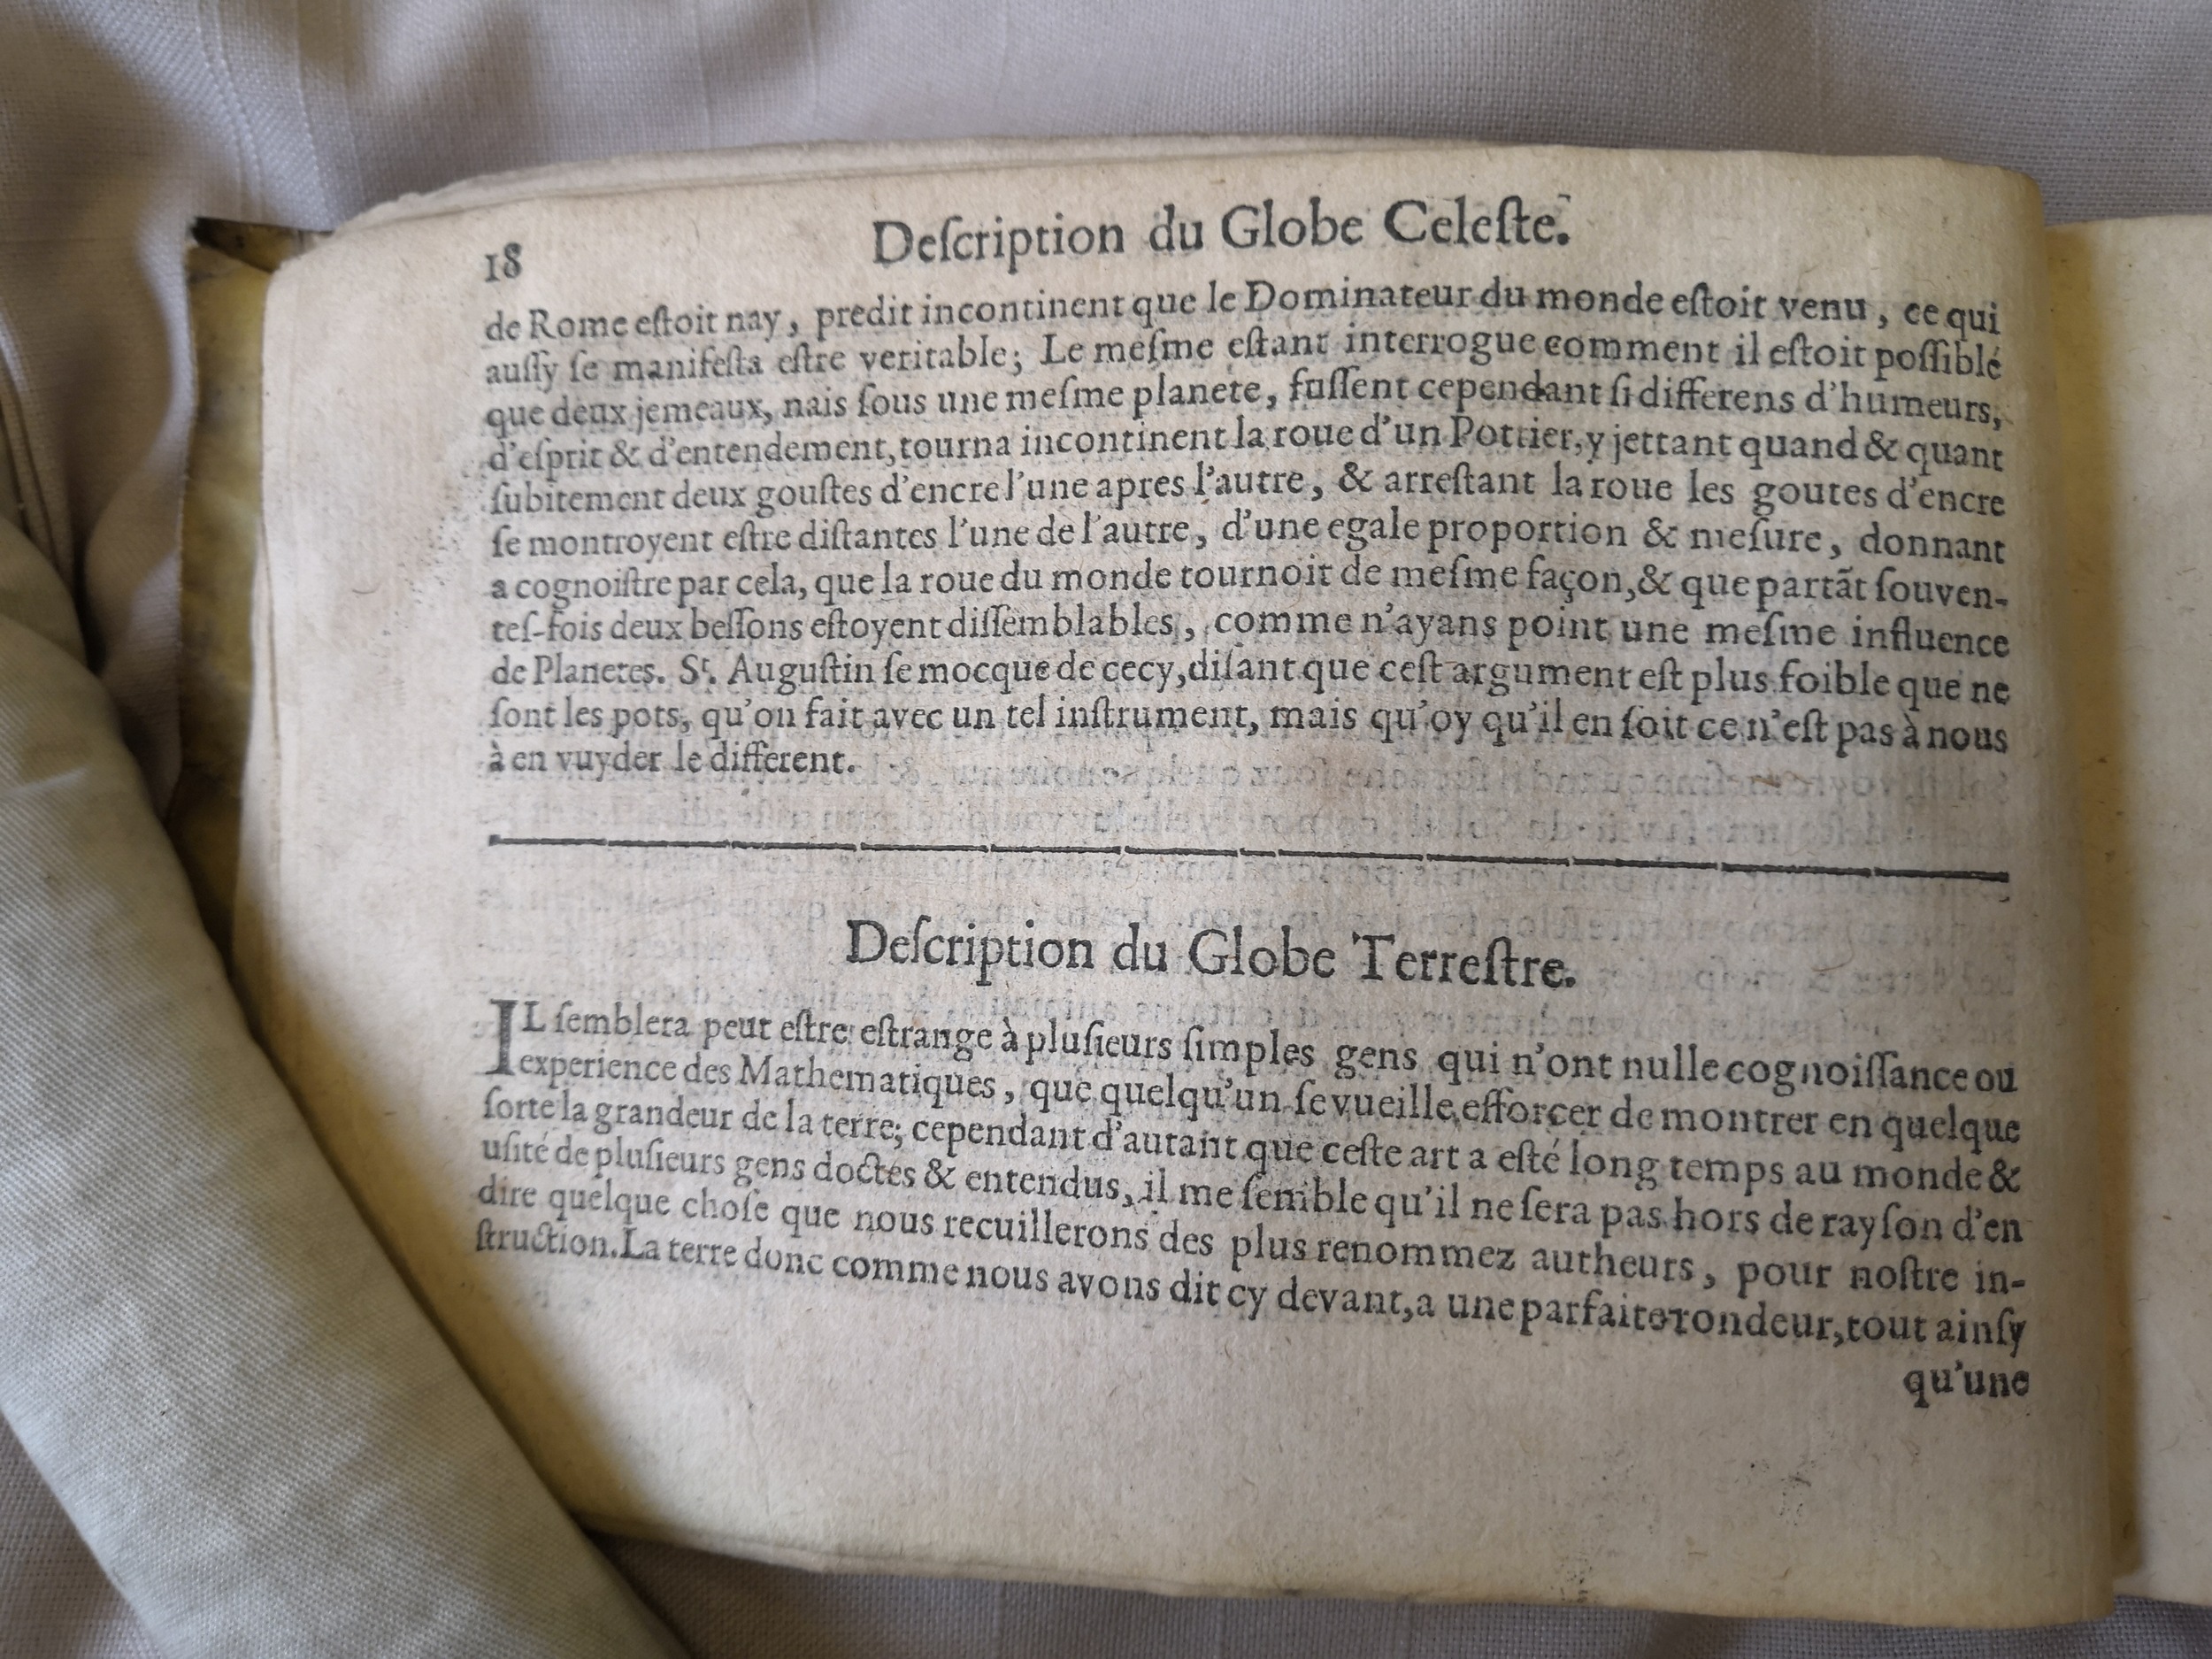 18
Deſcription du Globe Celeſte.
de Rome eſtoit nay, predit incontinent que le Dominateur du monde eſtoit venu, ce qui
auſſy ſe manifeſta eſtre veritable; Le meſme eſtant interrogue comment il eſtoit poſſiblé
que deux jemeaux, nais ſous une meſme planete, fuſſent cependant ſi differens d'humeurs,
d'eſprit & d'entendement, tourna incontinent la roue d'un Pottier, y jettant quand & quant
ſubitement deux gouſtes d'encre l'une apres l'autre, & arreſtant la roue les goutes d'encre
ſe montroyent eſtre diſtantes l'une de l'autre, d'une egale proportion & meſure, donnant
a cognoiſtre par cela, que la roue du monde tournoit de meſme façon, & que partãt ſouven-
teſ-fois deux beſſons eſtoyent diſſemblables, comme n'ayans point une meſme influence
de Planetes. Sᵗ. Auguſtin ſe mocque de cecy, diſant que ceſt argument eſt plus foible que ne
ſont les pots, qu'on fait avec un tel inſtrument, mais qu'oy qu'il en ſoit ce n'eſt pas à nous
à en vuyder le different.
Deſcription du Globe Terreſtre.
IL ſemblera peut eſtre eſtrange à pluſieurs ſimples gens qui n'ont nulle cognoiſſance ou
experience des Mathematiques, que quelqu'un ſe vueille efforcer de montrer en quelque
ſorte la grandeur de la terre; cependant d'autant que ceſte art a eſté long temps au monde &
uſité de pluſieurs gens doctes & entendus, il me ſemble qu'il ne ſera pas hors de rayſon d'en
dire quelque choſe que nous recuillerons des plus renommez autheurs, pour noſtre in-
ſtruction. La terre donc comme nous avons dit cy devant, a une parfaite rondeur, tout ainſy
qu'une